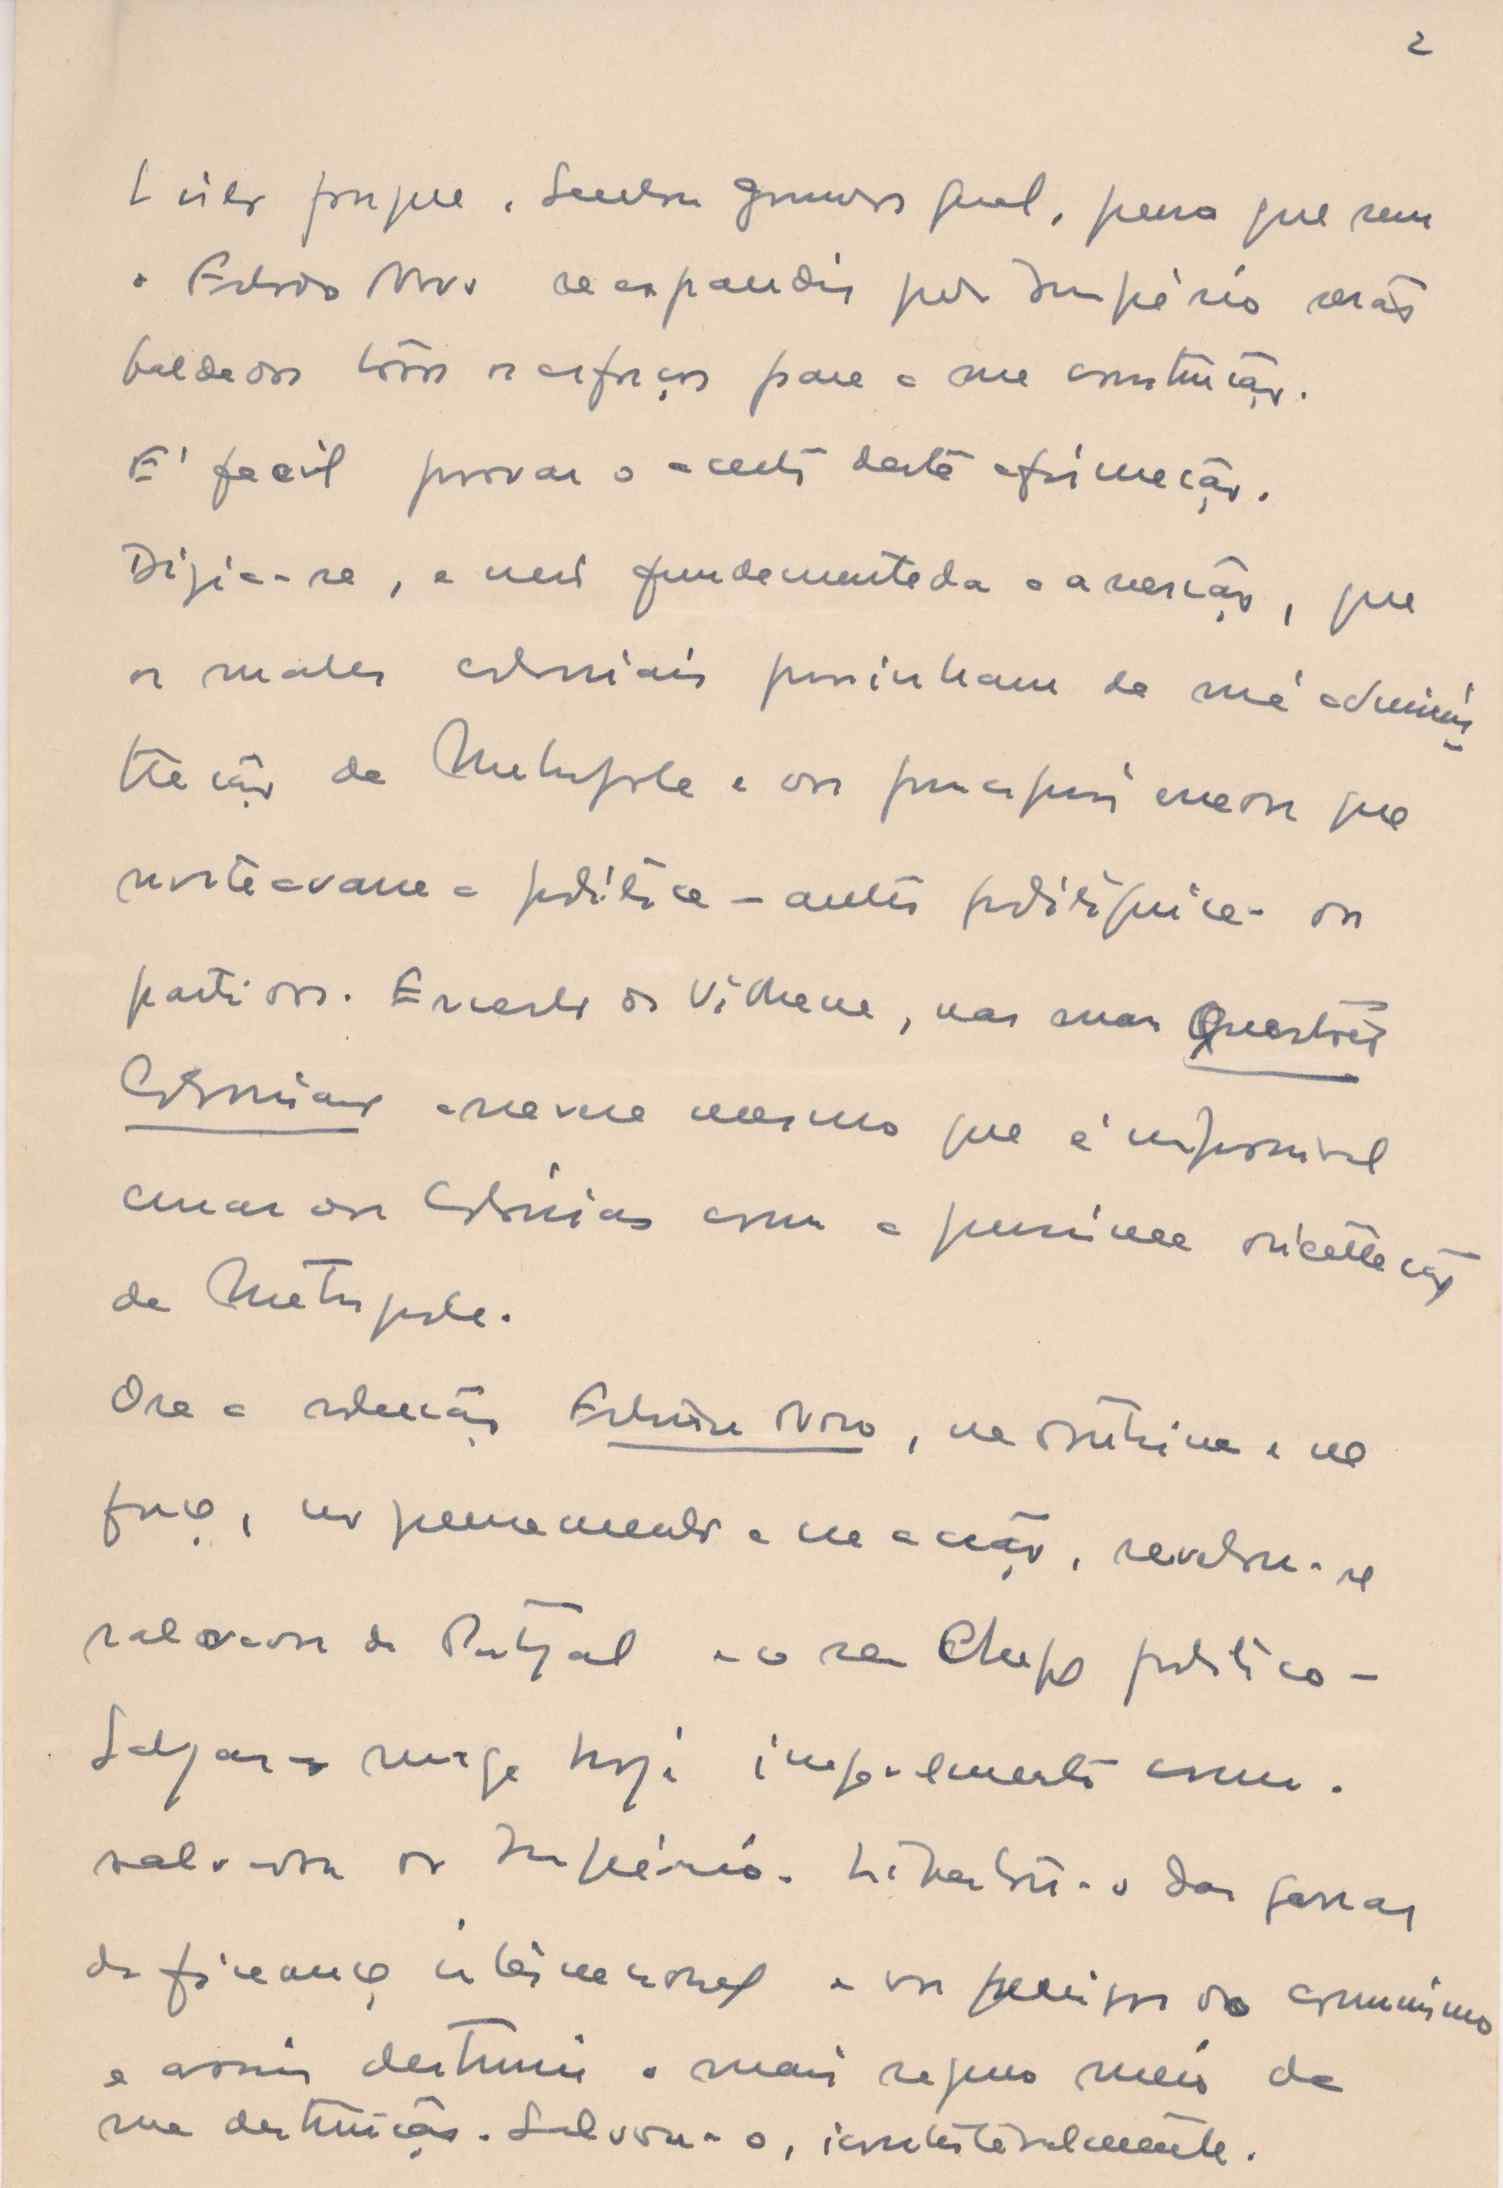 2
porque, Senhor Governador Geral, penso que sem
o Estado Novo se expandir pelo Império serão
baldados todos os esforços para a sua construção.
E' facil provar o acerto desta afirmação.
Dizia-se, e era fundamentada a asserção, que
os males coloniais provinham da má adminis
tração da Metropole e dos principios que
norteavam a politica - antes politiquice - dos
partidos. Ernesto de Vilhena, nas suas Questões
Coloniais escreveu mesmo que é impossivel
curar as Colonias com a pessima orientação
da Metropole.
Ora a solução Estado Novo, na doutrina e na
força, no pensamento e na acção, revelou-se
salvadora de Portugal e o seu Chefe politico -
Salazar - surge hoje inegavelmente como o
salvador do Império. Libertou-o das garras
da finança internacional e dos perigos do comunismo
e assim destruiu o mais seguro meio da
sua destruição. Salvou-o, incontestavelmente.